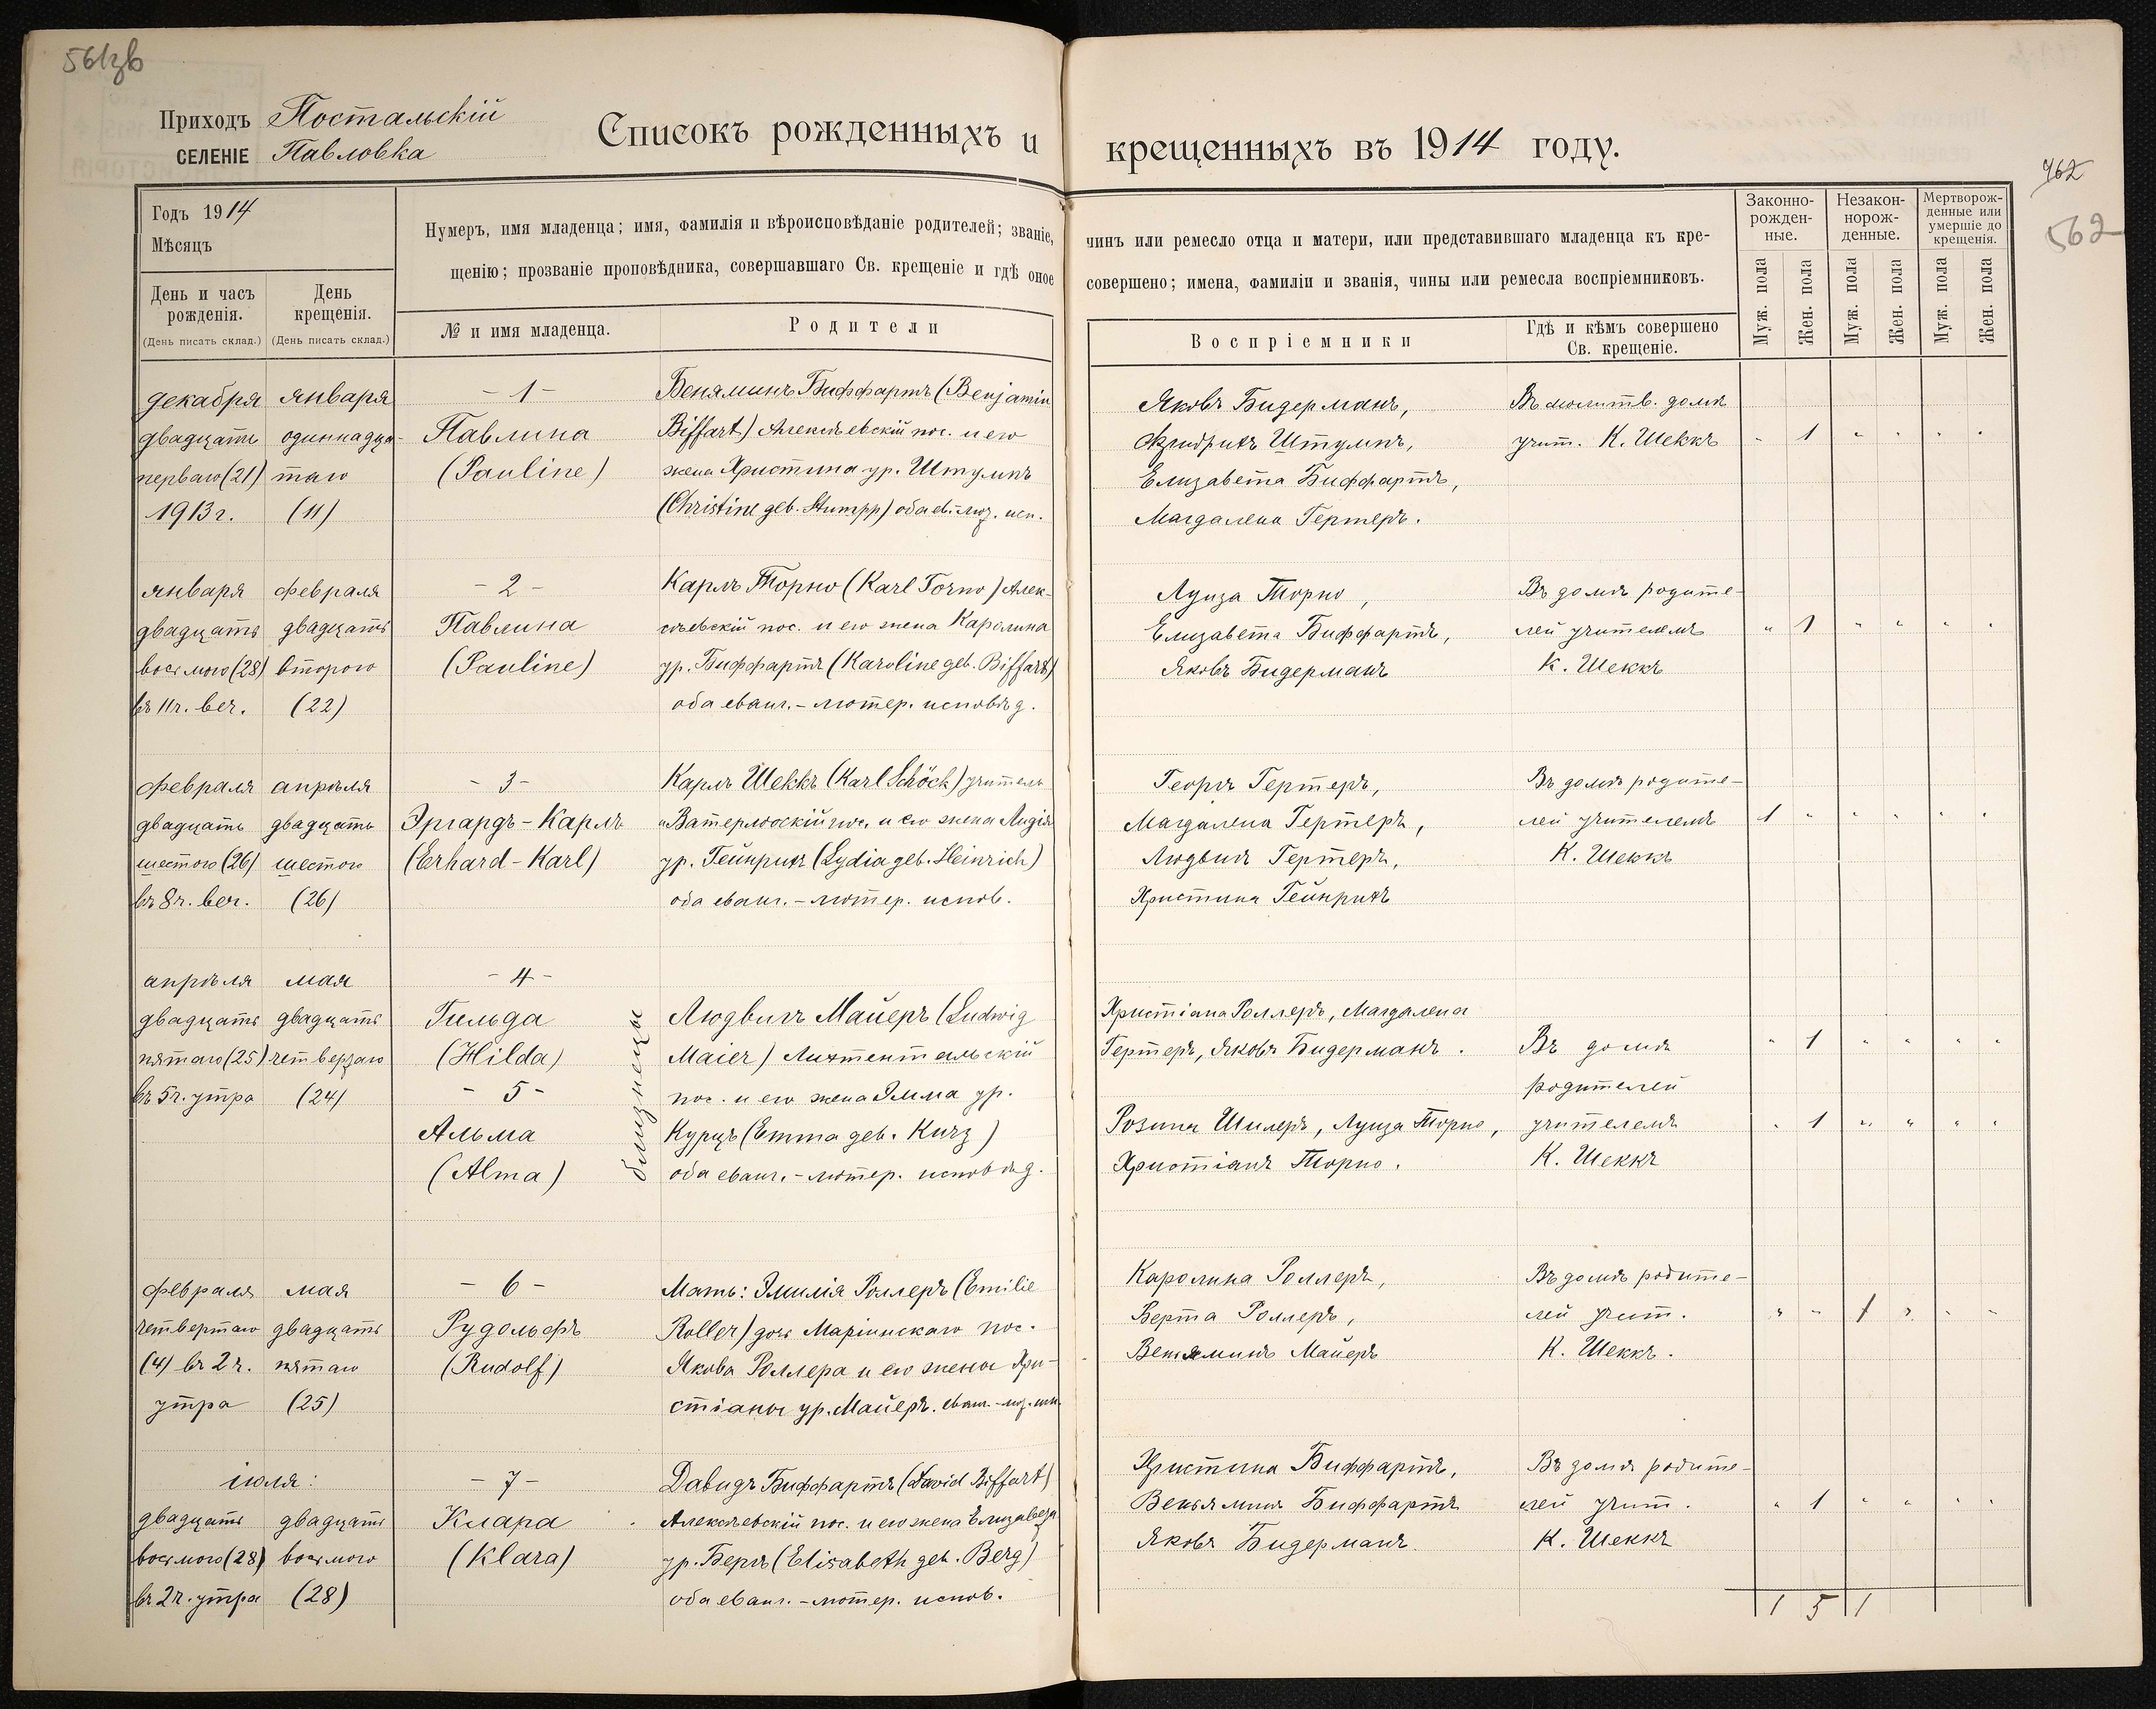 561зв
Приходъ Постальскій
селеніе Павловка
Списокъ рожденныхъ и крещенныхъ въ 1914 году.
962
562
Годъ 1914
Мѣсяцъ
День и часъ рожденія.
(День писать склад.)
День крещенія.
(День писать склад.)
Нумеръ, имя младенца; имя, фамилія и вѣроисповѣданіе родителей; званіе, чинъ или ремесло отца и матери, или представившаго младенца къ кре-
щенію; прозваніе проповѣдника, совершавшаго Св. крещеніе и гдѣ оное совершено; имена, фамиліи и званія, чины или ремесла воспріемниковъ.
№ и имя младенца.
Родители
Воспріемники
Гдѣ и кѣмъ совершено
Св. крещеніе.
Законно-
рожден-
ные.
Незакон-
норож-
денные.
Мертворож-
денные или
умершіе до
крещенія.
Муж. пола
Жен. пола
Муж. пола
Жен. пола
Муж. пола
Жен. пола
декабря января - 1 - Беняминъ Биффартъ (Benjamin Яковъ Бидерманъ, Въ молитв. домѣ
двадцать одиннадца- Павлина Biffart) Алексѣевскій пос. и его Фридрихъ Штумпъ, учит. К. Шеккъ " 1 " " " "
перваго (21) таго (Pauline) жена Христина ур. Штумпъ Елизавета Биффартъ,
1913 г. (11) (Christine geb. Stumpp) оба ев.-лют. исп. Магдалена Гертеръ.
января февраля - 2 - Карлъ Торно (Karl Torno) Алек- Луиза Торно, Въ домѣ родите-
двадцать двадцать Павлина сѣевскій пос. и его жена Каролина Елизавета Биффартъ, лей учителемъ " 1 " " " "
восьмого (28) второго (Pauline) ур. Биффартъ (Karoline geb. Biffart) Яковъ Бидерманъ К. Шеккъ
въ 11 ч. веч. (22) оба еванг.-лютер. исповѣд.
февраля апрѣля - 3 - Карлъ Шеккъ (Karl Schöck) учитель Георгъ Гертеръ, Въ домѣ родите-
двадцать двадцать Эргардъ-Карлъ и Ватерлооскій пос. и его жена Лидія Магдалена Гертеръ, лей учителемъ 1 " " " " "
шестого (26) шестого (Erhard-Karl) ур. Гейнрихъ (Lydia geb. Heinrich) Людвигъ Гертеръ, К. Шеккъ
въ 8 ч. веч. (26) оба еванг.-лютер. испов. Христина Гейнрихъ
апрѣля мая - 4 -
двадцать двадцать Гильда Людвигъ Майеръ (Ludwig Христіана Роллеръ, Магдалена
пятаго (25) четвертаго (Hilda) Maier) Лихтентальскій Гертеръ, Яковъ Бидерманъ. Въ домѣ " 1 " " " "
въ 5 ч. утра (24) - 5 - пос. и его жена Эмма ур. родителей
Альма Курцъ (Emma geb. Kurz) Розина Шилеръ, Луиза Торно, учителемъ " 1 " " " "
(Alma) оба еванг.-лютер. исповѣд. Христіанъ Торно. К. Шеккъ
близнецы
февраля мая - 6 - Мать: Эмилія Роллеръ (Emilie Каролина Роллеръ, Въ домѣ родите-
четвертаго двадцать Рудольфъ Roller) дочь Маріинскаго пос. Берта Роллеръ, лей учит. " " 1 " " "
(4) въ 2 ч. пятаго (Rudolf) Якова Роллера и его жены Хри- Веньяминъ Майеръ К. Шеккъ.
утра (25) стіаны ур. Майеръ. еванг.-лют. исп.
іюля: - 7 - Давидъ Биффартъ (David Biffart) Христина Биффартъ, Въ домѣ родите-
двадцать двадцать Клара Алексѣевскій пос. и его жена Елизавета Веньяминъ Биффартъ лей учит. " 1 " " " "
восьмого (28) восьмого (Klara) ур. Бергъ (Elisabeth geb. Berg) Яковъ Бидерманъ. К. Шеккъ
въ 2 ч. утра (28) оба еванг.-лютер. испов.
1 5 1